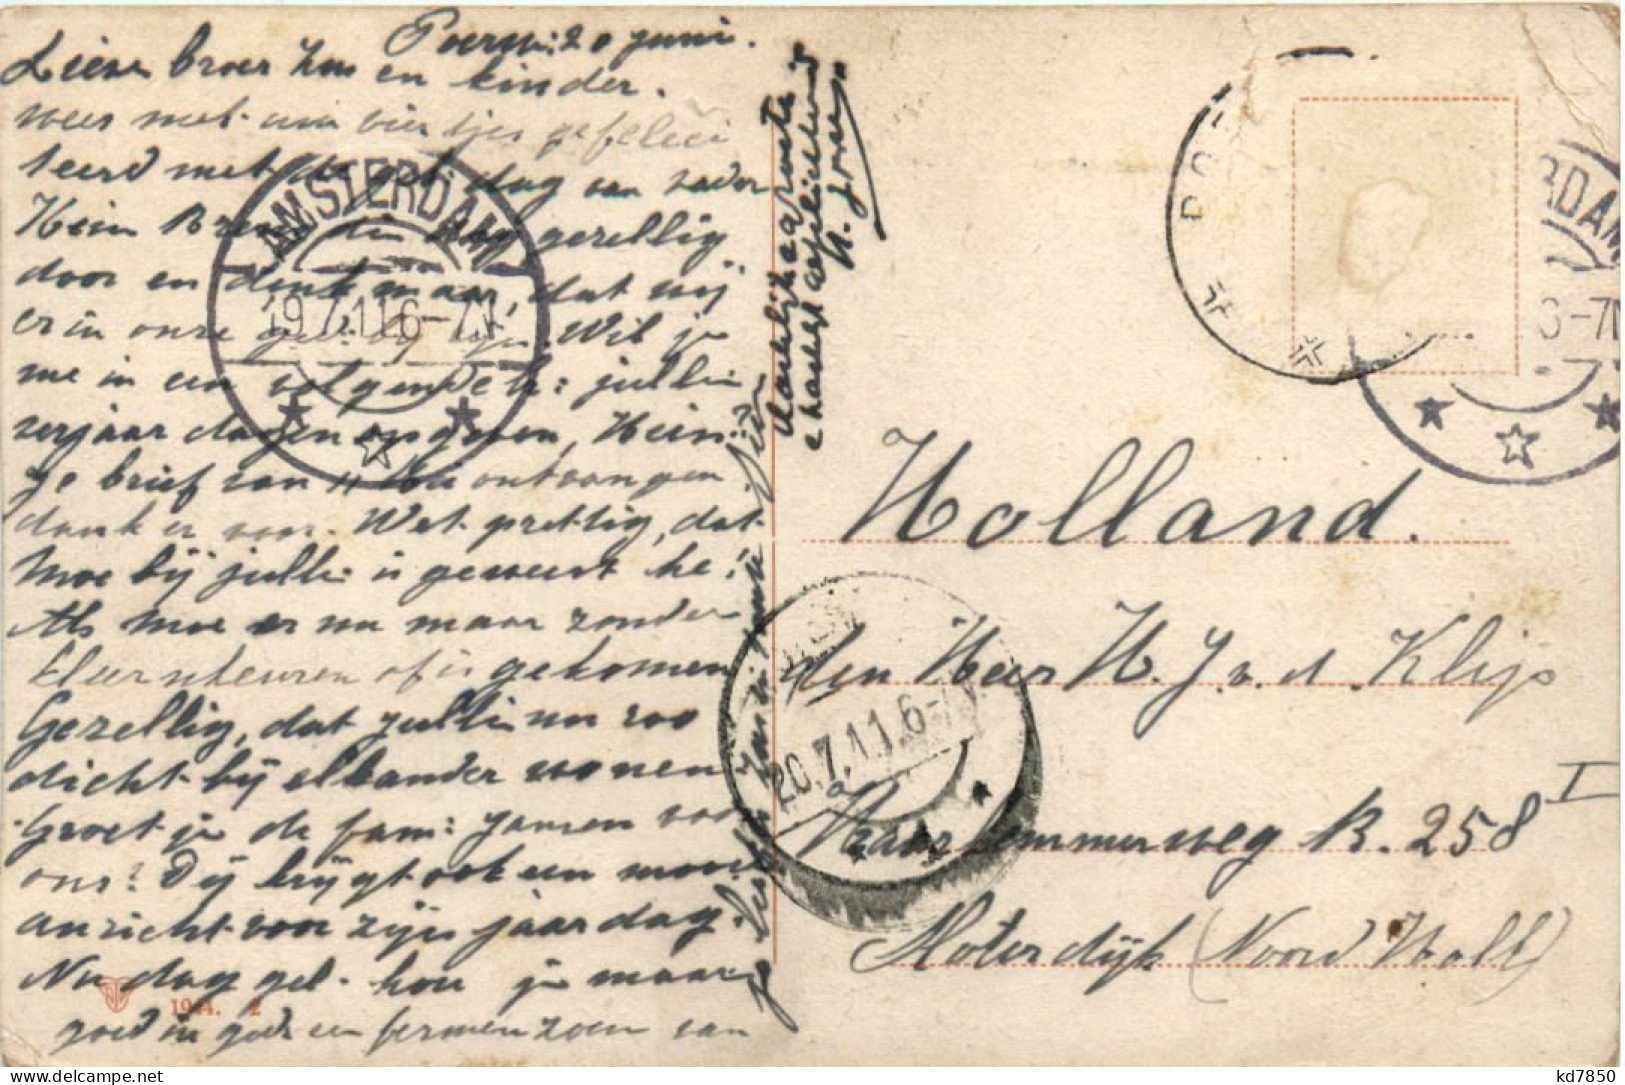 Poerw: 20 juni.
Lieve broer Jan en kinder.
wees met uw viertjes gefelici
teerd met de geb: dag van vader
Hein Breng die dag gezellig
door en denk maar, dat wij
er in onze ged: bij zijn. Wil je
me in een volgende k: jullie
verjaar dagen opgeven, Hein?
Je brief van ontvangen
dank er voor. Wat prettig, dat
Moe bij jullie is geweest he!
Als moe er nu maar zonder
kleerscheuren af is gekomen
Gezellig, dat jullie nu zoo
dicht bij elkander wonen
Groet je de fam: Jansen voor
ons? Dij krijgt ook een mooi
anzicht voor zijn jaardag.
Nu dag gel. hou je maar
goed in gods en fermen zoen van
Hartelijke groete
AMSTERDAM
19.7.11.6-7.N
20.7.11.6-7
RDAM
6-7N
Holland.
den Heer H. J. v. d. Klijs
Haarlemmerweg R. 258 I
Sloterdijk (Noord Holl)
1944. 2
kd7850